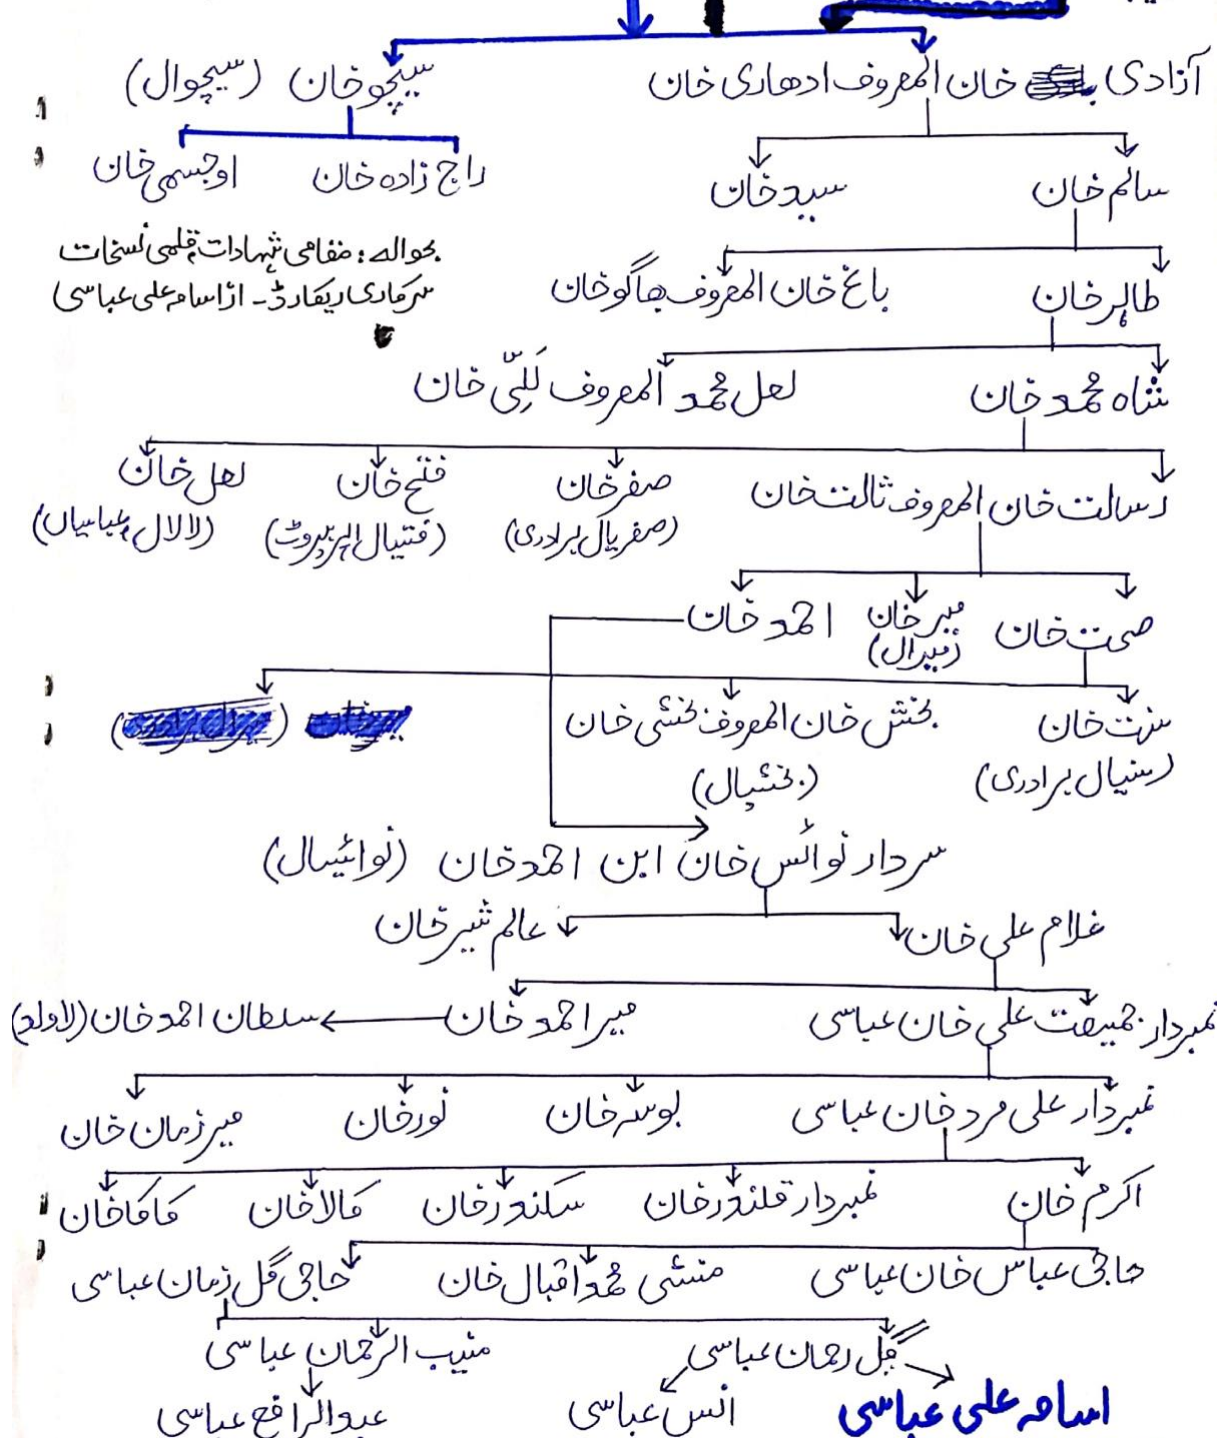 آزادی خان المعروف ادھاری خان
سیچو خان (سیچوال)
راج زادہ خان
اوجسمی خان
سالم خان
سید خان
بحوالہ: مقامی شہادات، قلمی نسخات
سرکاری ریکارڈ۔ از اسامہ علی عباسی
طاہر خان
باغ خان المعروف بھاگو خان
شاہ محمد خان
لعل محمد المعروف لَلِّی خان
رسالت خان المعروف ثالت خان
صفر خان
فتح خان
لعل خان
(صفریال برادری)
(فتیال بیروٹ)
(لالال عباسیاں)
صحت خان
میر خان
احمد خان
(میرال)
منہت خان
بخش خان المعروف بخشی خان
(منیال برادری)
(بخشیال)
سردار نوائس خان ابن احمد خان (نوائیسال)
غلام علی خان
عالم شیر خان
نمبردار جمیعت علی خان عباسی
میر احمد خان
سلطان احمد خان (لاولد)
نمبردار علی مرد خان عباسی
بوستر خان
نور خان
میر زمان خان
اکرم خان
نمبردار قلندر خان
سکندر خان
کالا خان
کاکا خان
حاجی عباس خان عباسی
منشی محمد اقبال خان
حاجی گل زمان عباسی
گل رحمان عباسی
منیب الرحمان عباسی
اسامہ علی عباسی
انس عباسی
عبدالرافع عباسی